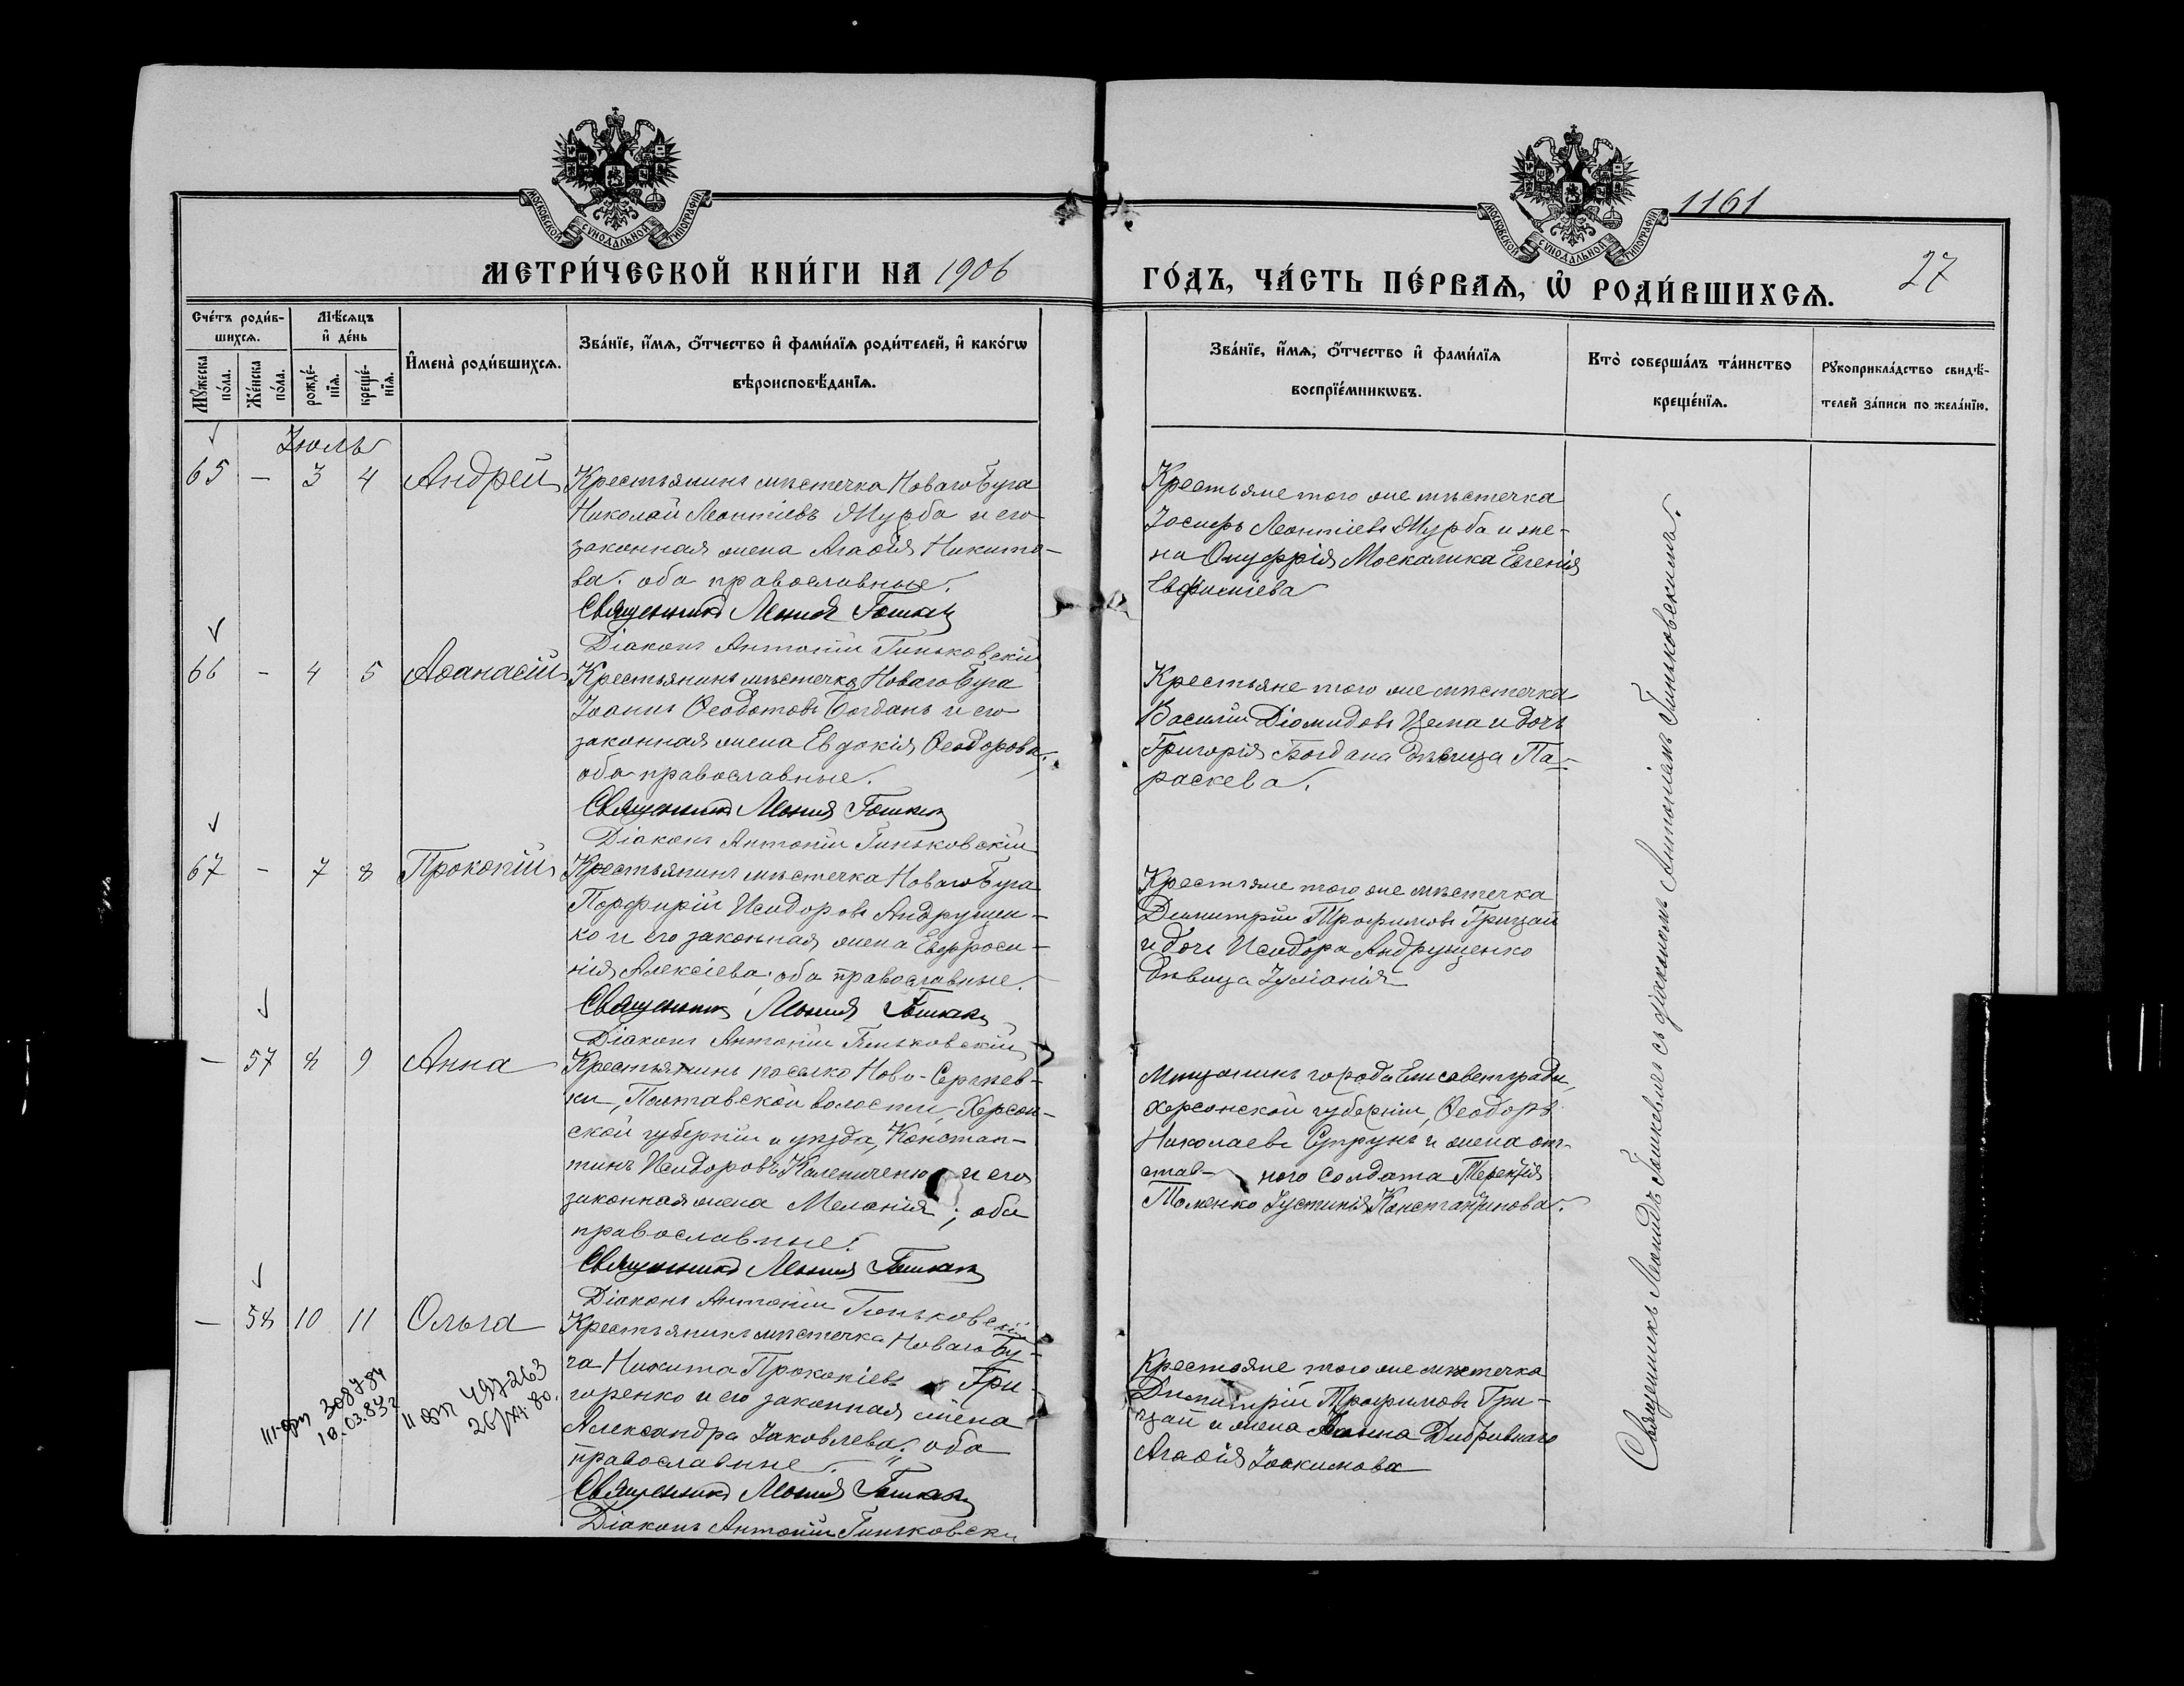 МОСКОВСКОЙ СѴНОДАЛЬНОЙ ТИПОГРАФІИ
МОСКОВСКОЙ СѴНОДАЛЬНОЙ ТИПОГРАФІИ
1161
МЕТРИ́ЧЕСКОЙ КНИ́ГИ НА 1906
ГО́ДЪ, ЧА́СТЬ ПЕ́РВАѦ, Ѡ҆ РОДИ́ВШИХСѦ.
27
Сче́тъ роди́в-
шихсѧ.
Мꙋ́жеска по́ла.
Же́нска по́ла.
Мѣ́сѧцъ
и҆ де́нь
рожде́-
нїѧ.
креще́-
нїѧ.
И҆мена̀ роди́вшихсѧ.
Зва́нїе, и҆́мѧ, ѻ҆́тчество и҆ фами́лїѧ роди́телей, и҆ како́гѡ
вѣроисповѣ́данїѧ.
Зва́нїе, и҆́мѧ, ѻ҆́тчество и҆ фами́лїѧ
воспрїе́мникѡвъ.
Кто̀ соверша́лъ та́инство
креще́нїѧ.
Рꙋкоприкла́дство свидѣ́-
телей за́писи по жела́нїю.
Іюль
65 – 3 4 Андрей
Крестьянинъ мѣстечка Новаго Буга
Николай Леонтіевъ Журба и его
законная жена Агаѳія Никито-
ва. оба православные.
Священникъ Леонид
Діаконъ Антоній Гиньковскій
Крестьяне того же мѣстечка
Іосифъ Леонтіевъ Журба и же-
на Онуфрія Москалика Евгенія
Евфиміева
66 – 4 5 Аѳанасій
Крестьянинъ мѣстечка Новаго Буга
Іоаннъ Ѳеодотовъ Богданъ и его
законная жена Евдокія Ѳеодорова.
оба православные.
Священникъ Леонид
Діаконъ Антоній Гиньковскій
Крестьяне того же мѣстечка
Василій Діомидовъ Цема и дочь
Григорія Богдана дѣвица Па-
раскева.
67 – 7 8 Прокопій
Крестьянинъ мѣстечка Новаго Буга
Порфирій Исидоровъ Андрущен-
ко и его законная жена Евфроси-
нія Алексіева, оба православные.
Священникъ Леонид
Діаконъ Антоній Гиньковскій
Крестьяне того же мѣстечка
Димитрій Трофимовъ Грицай
и дочь Исидора Андрущенко
дѣвица Іуліанія
– 57 8 9 Анна
Крестьянинъ поселка Ново-Сергѣев-
ки, Полтавской волости, Херсон-
ской губерніи и уѣзда, Констан-
тинъ Исидоровъ Калениченко и его
законная жена Меланія; оба
православные.
Священникъ Леонид
Діаконъ Антоній Гиньковскій
Мѣщанинъ города Елисаветграда,
Херсонской губерніи, Ѳеодоръ
Николаевъ Супрунъ и жена от-
став- ного солдата Терентія
Іустинія Константинова.
– 58 10 11 Ольга
Крестьянинъ мѣстечка Новаго Бу-
га Никита Прокопіевъ Гри-
горенко и его законная жена
Александра Іаковлева; оба
православные.
Священникъ Леонид
Діаконъ Антоній Гиньковскі
Крестьяне того же мѣстечка
Димитрій Трофимовъ Гри-
цай и жена
Агаѳія Іоакимова
308784
18.03.83г
II 497263
Священникъ Леонидъ съ діакономъ Антоніемъ Гиньковскимъ.